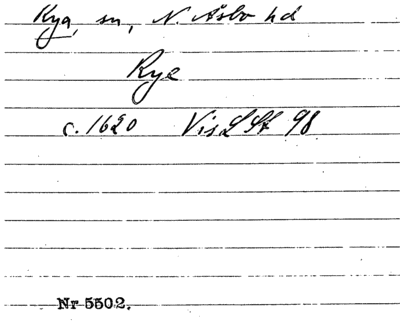 Rya, sn, N. Åsbo hd
Rye
c. 1620 Vis L St 98
Nr 5502.